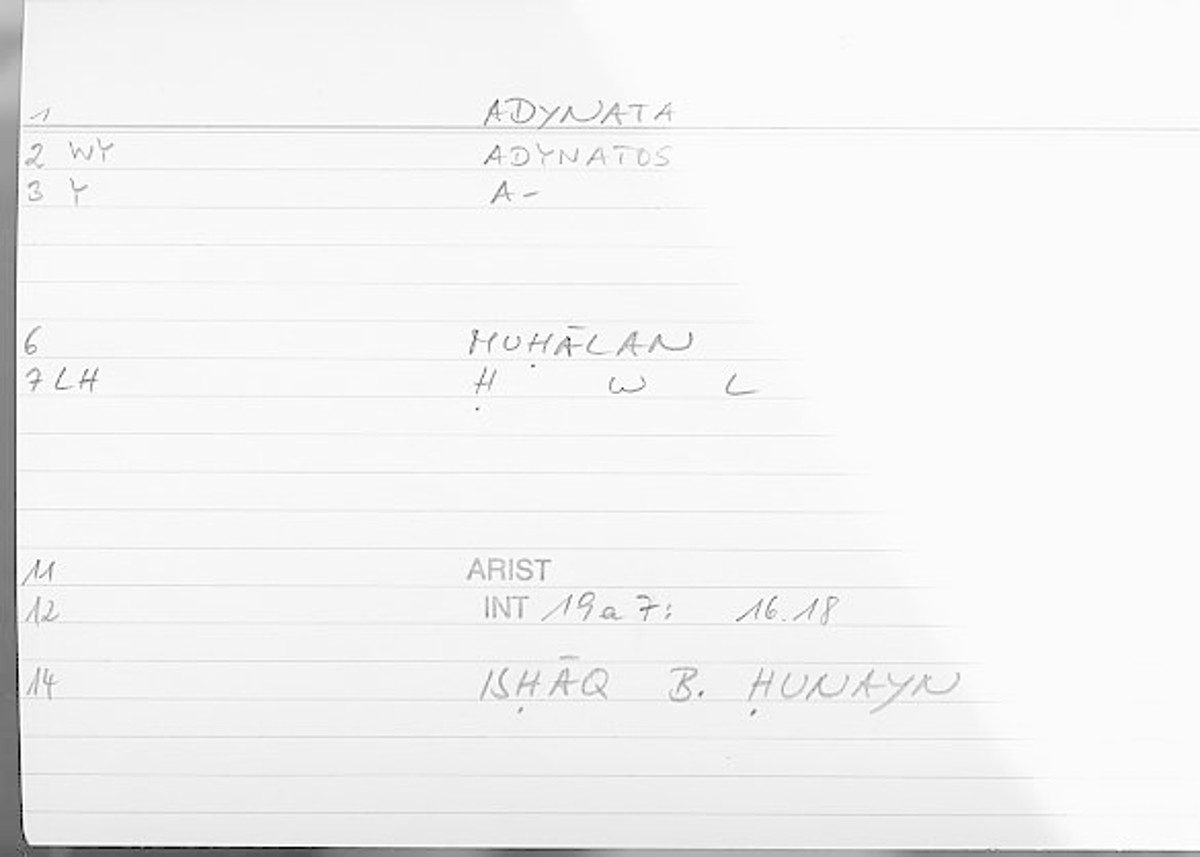 1 ADYNATA
2 WY ADYNATOS
3 Y A-
6 MUḤĀLAN
7 LH Ḥ W L
11 ARIST
12 INT 19a7: 16.18
14 ISḤĀQ B. ḤUNAYN